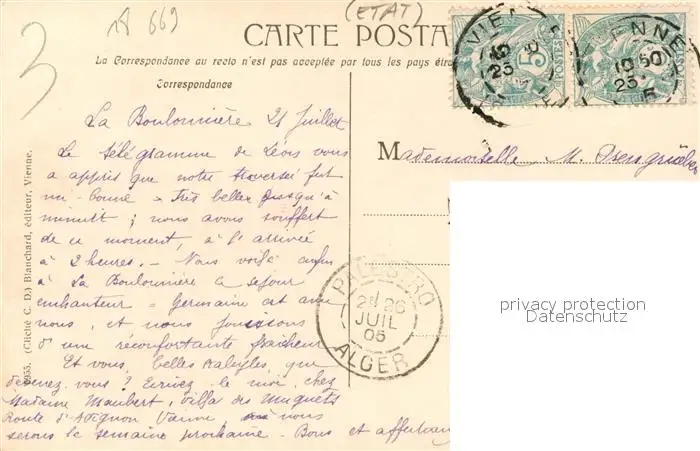 18 669
(ETAT)
3
CARTE POSTA
La Correspondance au recto n'est pas acceptée par tous les pays étra
Correspondance
La Boulonnière 21 juillet
Le télégramme de Léon vous
a appris que notre traversée fut
mi-bonne - très belle jusqu'à
minuit ; nous avons souffert
de ce moment, à l'arrivée
à 2 heures. - Nous voilà enfin
à La Boulonnière ce séjour
enchanteur - Germaine est avec
nous, et nous jouissons
d'une réconfortante fraîcheur
Et vous, belles Kabyles, que
devenez-vous ? Ecrivez le moi, chez
Madame Maubert, villa des Muguets
Route d'Avignon Vienne, nous
serons la semaine prochaine. - Bons et affectueux
Mademoiselle M.
5955. (Cliché C. D.) Blanchard, éditeur, Vienne.
VIENNE
25
5
POSTES
ENNE
19 50
25
POSTES
PALESTRO
26
JUIL
05
ALGER
privacy protection
Datenschutz